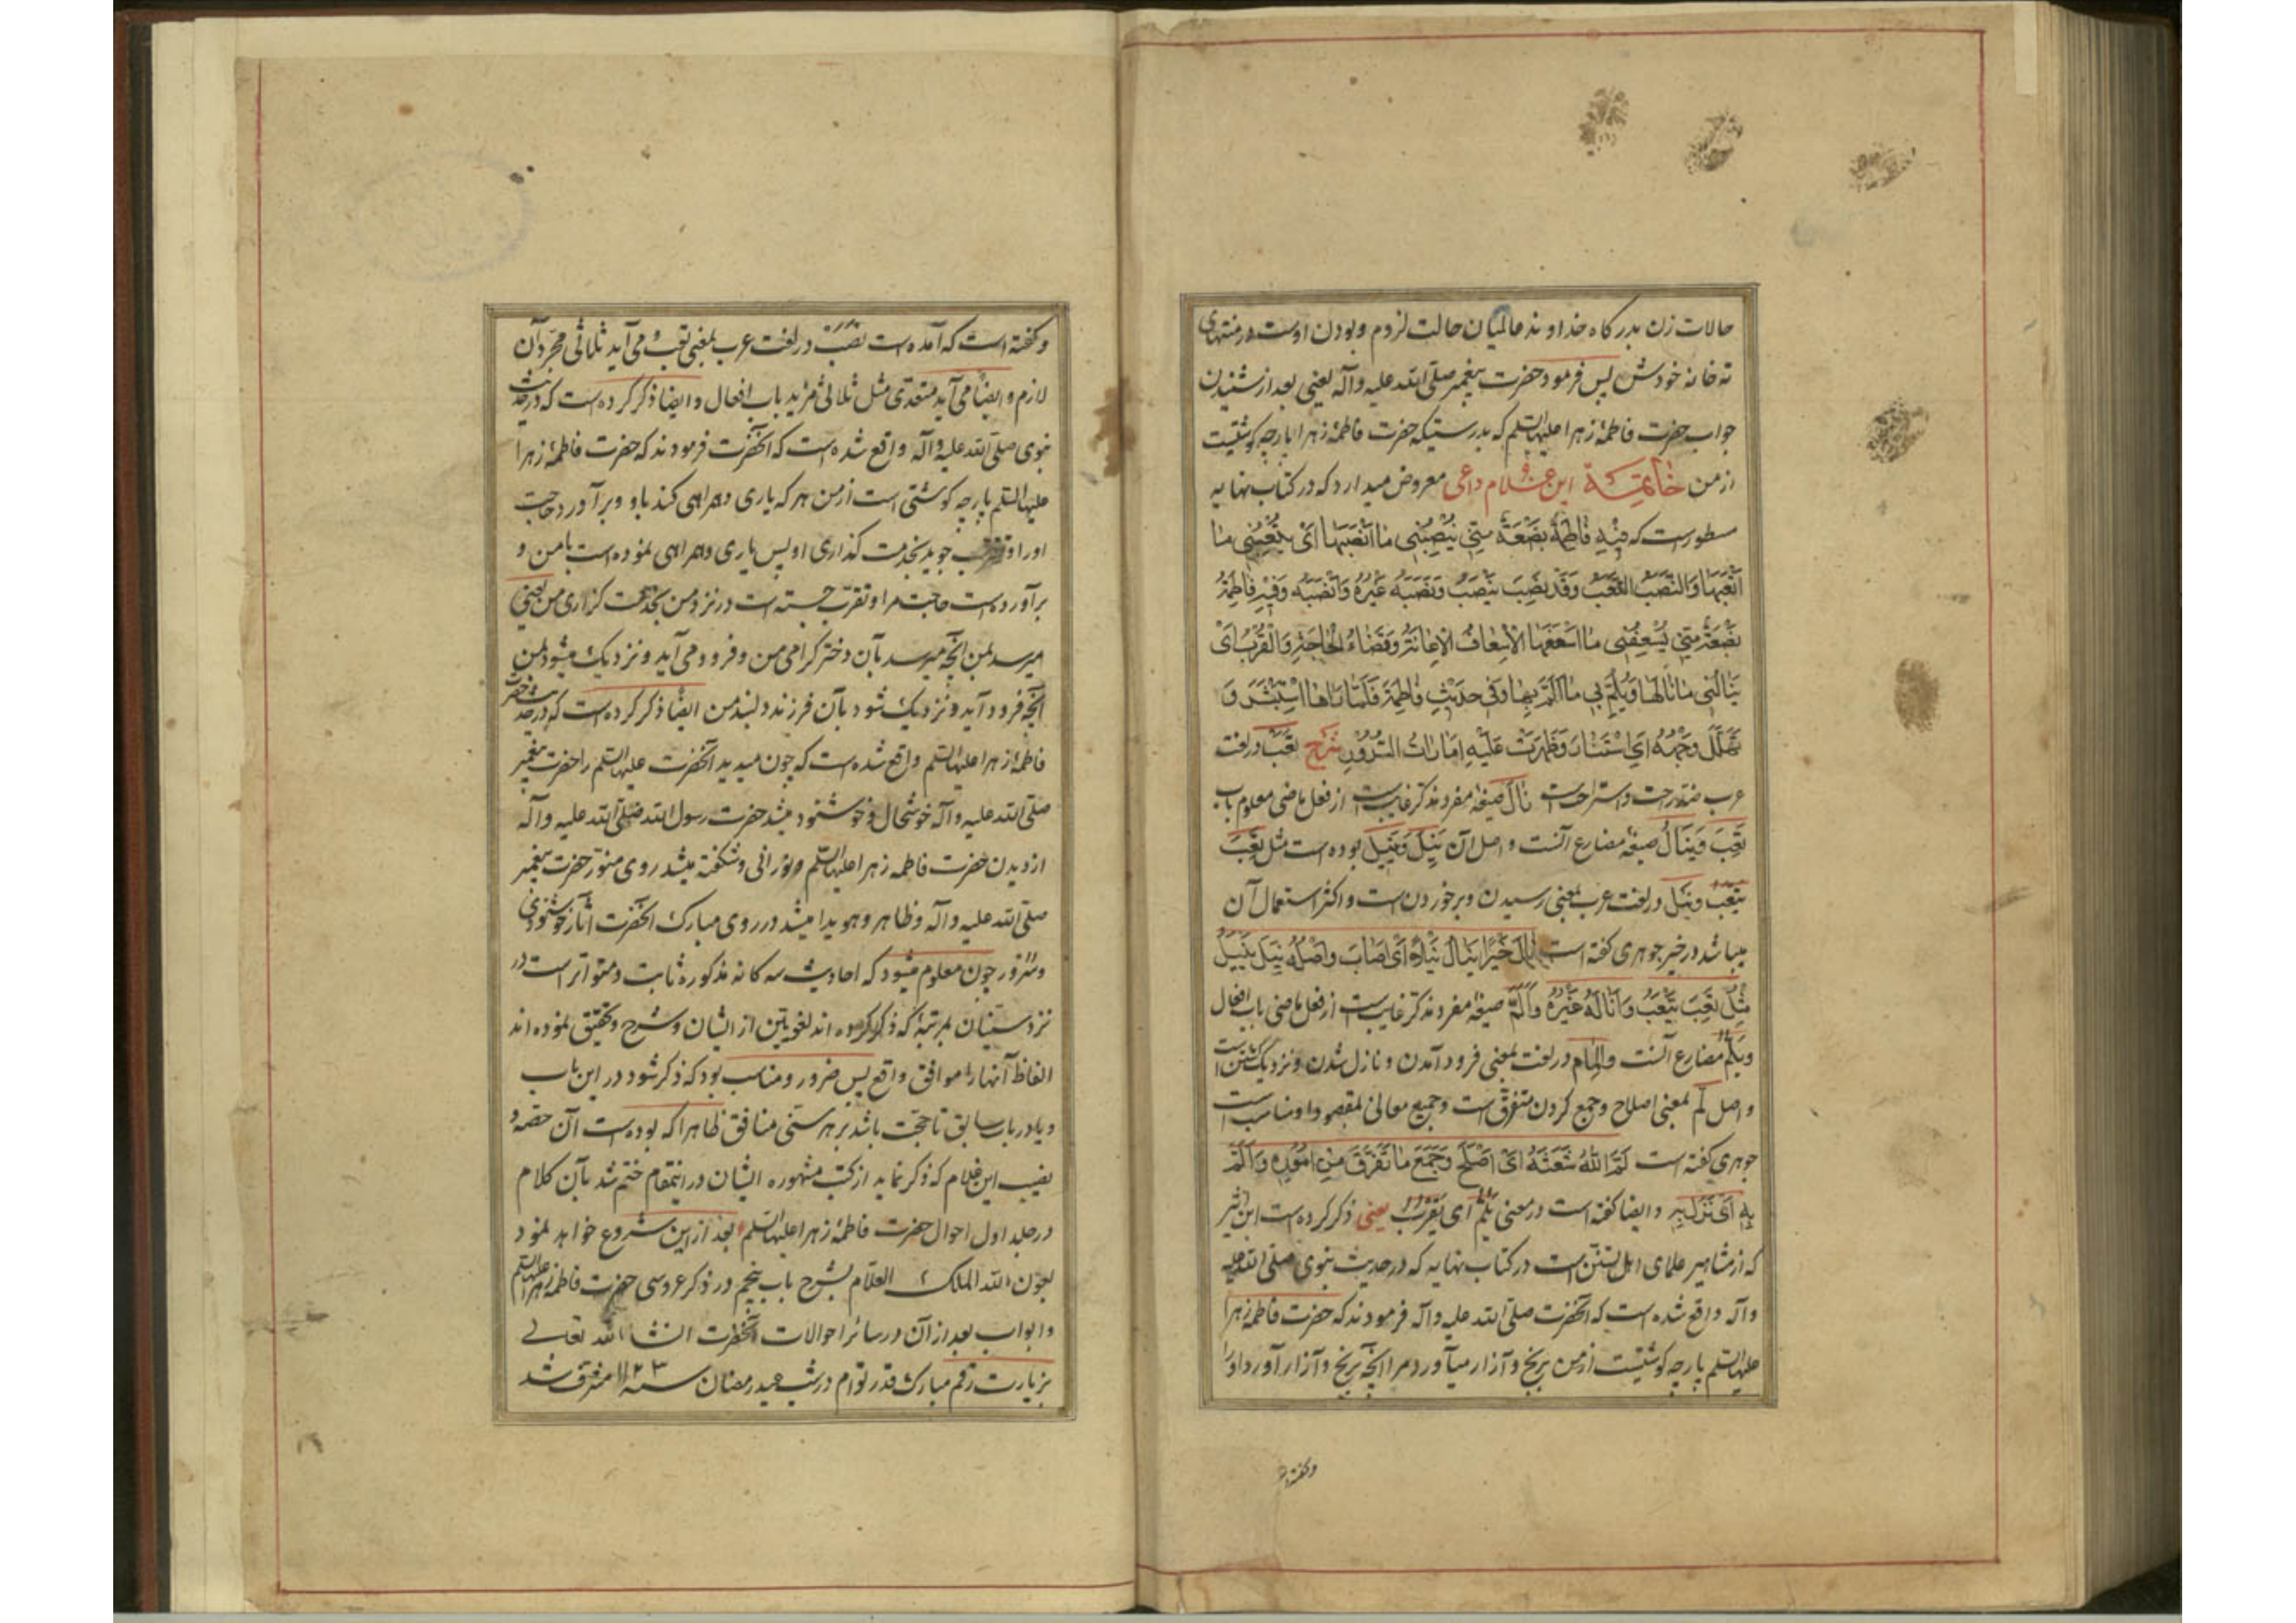 حالات زن بدرگاه خداوند عالمیان حالت لزوم و بودن اوست در منتهای
ته خانه خودش پس فرمود حضرت پیغمبر صلی الله علیه وآله یعنی بعد از شنیدن
جواب حضرت فاطمهٔ زهرا علیها السلام که بدرستیکه حضرت فاطمهٔ زهرا پارچه کوشتیست
از من خاتمة این غلام داعی معروض میدارد که در کتاب نهایه
مسطورست که فیه فاطمة بضعة منی ینصبنی ما انصبها ای یتعبنی ما
اتعبها والنصب التعب وقد نصب ینصب ونصبه غیره وانصبه وفیه فاطمة
بضعة منی یسعفنی ما اسعفها الاسعاف الاعانة وقضاء الحاجة والقرب ای
ینالنی ما نالها ویلم بی ما الم بها وفی حدیث فاطمة فلما راها استبشر و
تهلل وجهه ای استنار وظهرت علیه امارات السرور شرح تعب در لغت
عرب ضد راحت واستراحت است نال صیغهٔ مفرد مذکر غایب است از فعل ماضی معلوم باب
تعب وینال صیغهٔ مضارع آنست و اصل آن ینل وینیل بوده است مثل تعب
یتعب ونیل در لغت عرب بمعنی رسیدن وبرخوردن است و اکثر استعمال آن
میباشد در خیر جوهری کفته است نال خیرا ینال نیلا ای اصاب واصله نیل ینیل
مثل تعب یتعب واناله غیره والم صیغهٔ مفرد مذکر غایب است از فعل ماضی باب افعال
ویلم مضارع آنست والمام در لغت بمعنی فرود آمدن و نازل شدن و نزدیک شدن است
واصل لم بمعنی اصلاح وجمع کردن متفرق است وجمیع معانی بمقصود او مناسب است
جوهری کفته است لم الله شعثه ای اصلح وجمع ما تفرق من اموره والم
به ای نزل به و ایضا کفته است در معنی یلم ای یقرب یعنی ذکر کرده است ابن اثیر
که از مشاهیر علمای اهل تسنن است در کتاب نهایه که در حدیث نبوی صلی الله علیه
وآله واقع شده است که آنحضرت صلی الله علیه وآله فرمودند که حضرت فاطمهٔ زهرا
علیها السلام پارچه کوشتیست از من برنج وآزار میآورد مرا آنچه برنج وآزار آورد او را
وکفته
وکفته است که آمده است نصب در لغت عرب بمعنی تعب و می آید ثلاثی مجرد آن
لازم و ایضا می آید متعدی مثل ثلاثی مزید باب افعال و ایضا ذکر کرده است که در حدیث
نبوی صلی الله علیه وآله واقع شده است که آنحضرت فرمودند که حضرت فاطمهٔ زهرا
علیها السلم پارچه کوشتی است از من هر که یاری وهمراهی کند باو وبرآورد حاجت
او را و تقرب جوید بخدمت کذاری او پس یاری وهمراهی نموده است با من و
برآورده است حاجت مرا و تقرب جسته است در نزد من بخدمت کزاری من یعنی
میرسد بمن آنچه میرسد بآن دختر کرامی من وفرود می آید و نزدیک میشود بمن
آنچه فرود آید و نزدیک شود بآن فرزند دلبند من ایضا ذکر کرده است که در حدیث حضرت
فاطمهٔ زهرا علیها السلم واقع شده است که چون میدید آنحضرت علیها السلم را حضرت پیغمبر
صلی الله علیه وآله خوشحال و خوشنود میشد حضرت رسول الله صلی الله علیه وآله
از دیدن حضرت فاطمه زهرا علیها السلم و نورانی وشکفته میشد روی منور حضرت پیغمبر
صلی الله علیه وآله وظاهر وهویدا میشد در روی مبارک آنحضرت آثار خوشنودی
وسرور چون معلوم میشود که احادیث سه کانه مذکوره ثابت ومتواتر است در
نزد سنیان بمرتبهٔ که ذکر کرده اند لغویین از ایشان وشرح وتحقیق نموده اند
الفاظ آنها را موافق واقع پس ضرور و مناسب بود که ذکر شود در این باب
ویا در باب سابق تا حجت باشد بر هر سنی منافق ظاهرا که بوده است آن حصه و
نصیب این غلام که ذکر نماید از کتب مشهوره ایشان در اینمقام ختم شد بآن کلام
در جلد اول احوال حضرت فاطمهٔ زهرا علیها السلم بعد از این شروع خواهد نمود
بعون الله الملک العلام بشرح باب پنجم در ذکر عروسی حضرت فاطمه زهرا علیها السلم
و ابواب بعد از آن در سائر احوالات آنحضرت انشاء الله تعالی
بزیارت رقم مبارک قدر توام در شب عید رمضان سنه ۱۱۲۳ مشرف شد